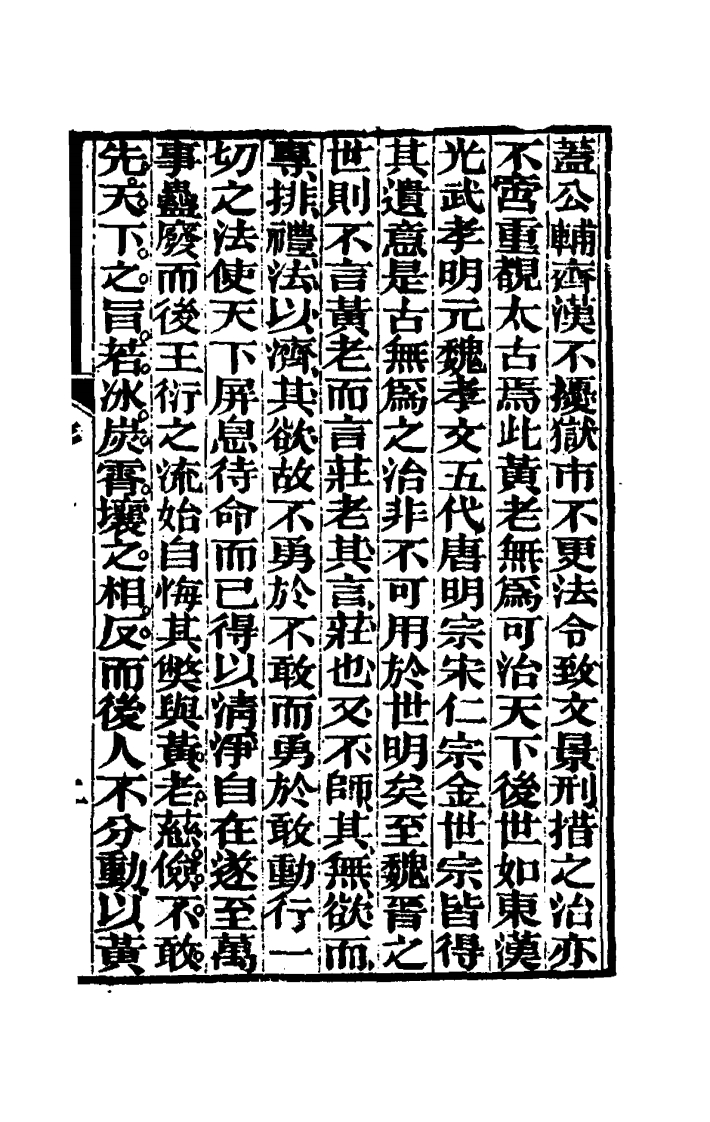 蓋公輔齊漢不擾獄市不更法令致文景刑措之治亦
不啻重覩太古焉此黃老無爲可治天下後世如東漢
光武孝明元魏孝文五代唐明宗宋仁宗金世宗皆得
其遺意是古無爲之治非不可用於世明矣至魏晉之
世則不言黃老而言莊老其言莊也又不師其無欲而
專排禮法以濟其欲故不勇於不敢而勇於敢動行一
切之法使天下屏息待命而已得以淸淨自在遂至萬
事蠱廢而後王衍之流始自悔其獘與黃老慈儉不敢
先天下之旨若冰炭霄壤之相反而後人不分動以黃